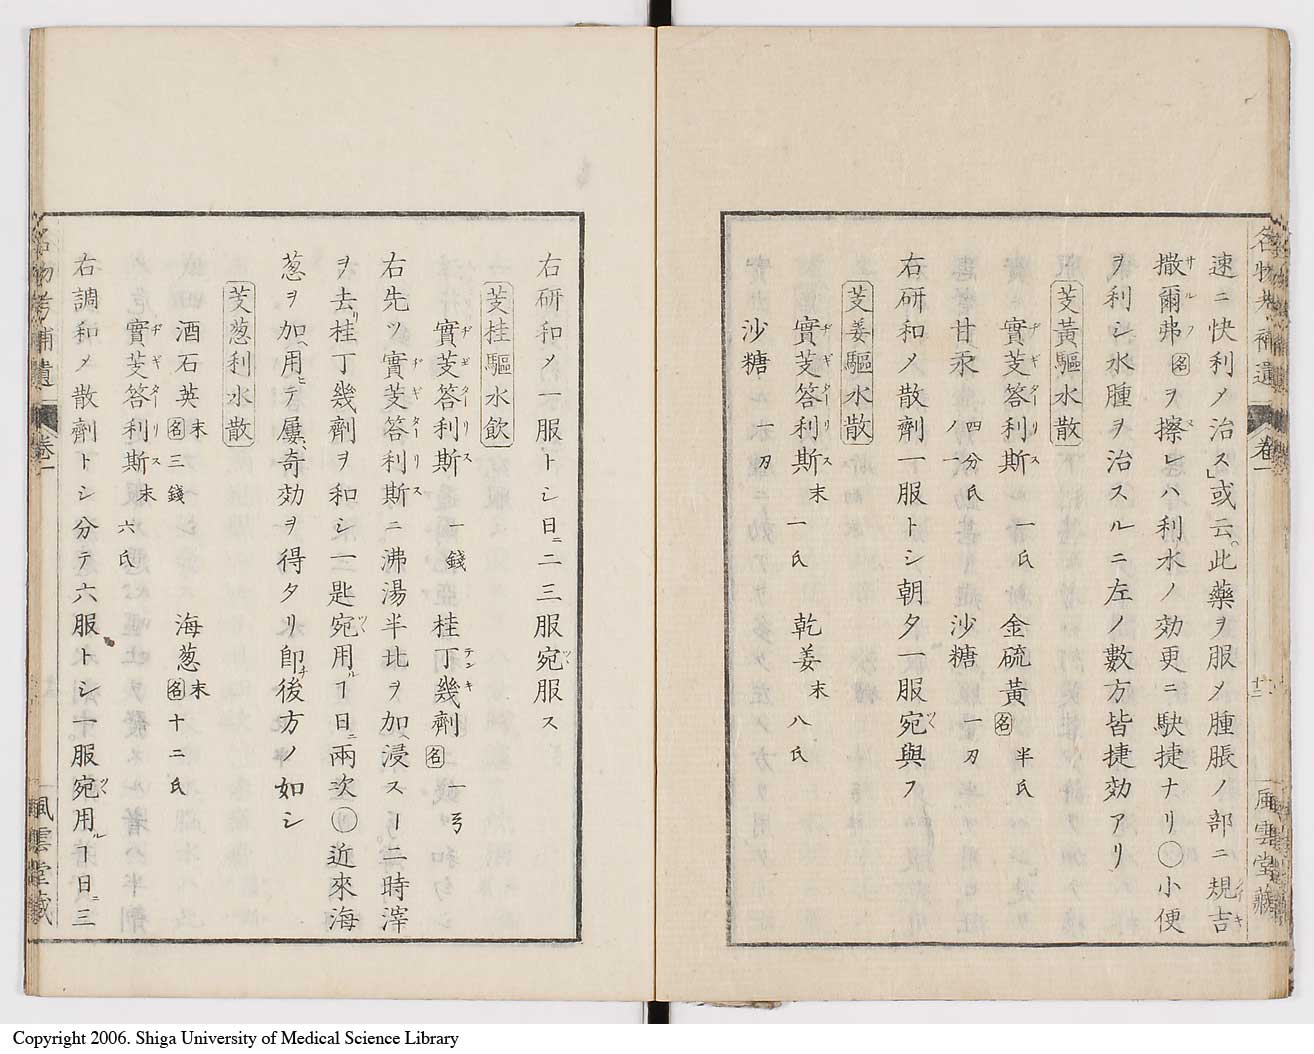 速ニ快利メ治ス」或云此藥ヲ服メ腫脹ノ部ニ規吉
撒爾弗名ヲ擦レハ利水ノ効更ニ駃捷ナリ〇小便
ヲ利シ水腫ヲ治スルニ左ノ數方皆捷効アリ
芰黃驅水散
實芰答利斯 一氏 金硫黃名 半氏
甘汞 四分氏ノ一 沙糖 一刃
右研和メ散劑一服トシ朝夕一服宛與フ
芰姜驅水散
實芰答利斯末 一氏 乾姜末 八氏
沙糖 一刃
名物考補遺 卷一 十二 風雲堂藏
右研和メ一服トシ日ニ二三服宛服ス
芰桂驅水飲
實芰答利斯 一錢 桂丁幾劑名 一弓
右先ツ實芰答利斯ニ沸湯半比ヲ加浸スヿ二時滓
ヲ去リ桂丁幾劑ヲ和シ一匙宛用ルヿ日ニ兩次〇近來海
葱ヲ加ヘ用ヒテ屢奇効ヲ得タリ卽チ後方ノ如シ
芰葱利水散
酒石英末名 三錢 海葱末名 十二氏
實芰答利斯末 六氏
右調和メ散劑トシ分テ六服トシ一服宛用ルヿ日ニ三
名物考補遺 卷一 風雲堂藏
Copyright 2006. Shiga University of Medical Science Library